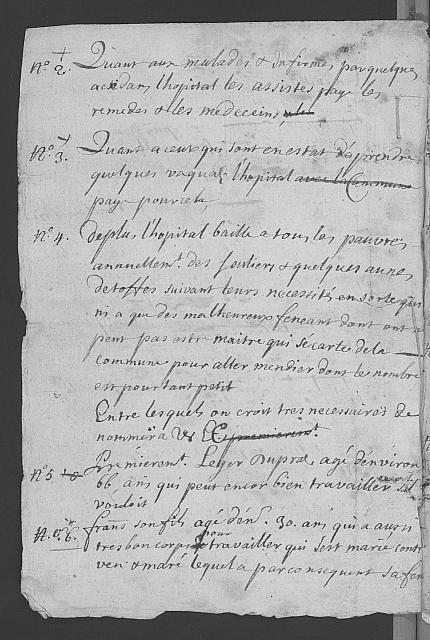 N.° 2. Quant aux malades & Infirmes par quelque
acudans l'hopital les assistes paye les
remedes & les medecins
N.° 3. Quant a ceux qui sont en estat d'aprendre
quelques l'hopital avec la Commune
paye pour cela,
N.° 4. deplus l'hopital baille a tous les pauvres
annuellem.t des souliers & quelques aunes
detoffes suivant leurs necessités en sorte quil
ni a que des malheureux feneant dont on
peut pas estre maitre qui sécarte de la
commune pour aller mendier dont le nombre
est pourtant petit
Entre lesquels on croit tres necessaires de
nommer a V. E. premierem.t
N.° 5 Premierem.t Leger Duprat agé d'environ
66 ans qui peut encor bien travailler sil
vouloit
N.° 6. frans son fils agé d'en.n 30. ans qui a aussi
tres bon corps pour travailler qui sest marié cont
ven & maré lequel a par consequent sa fem